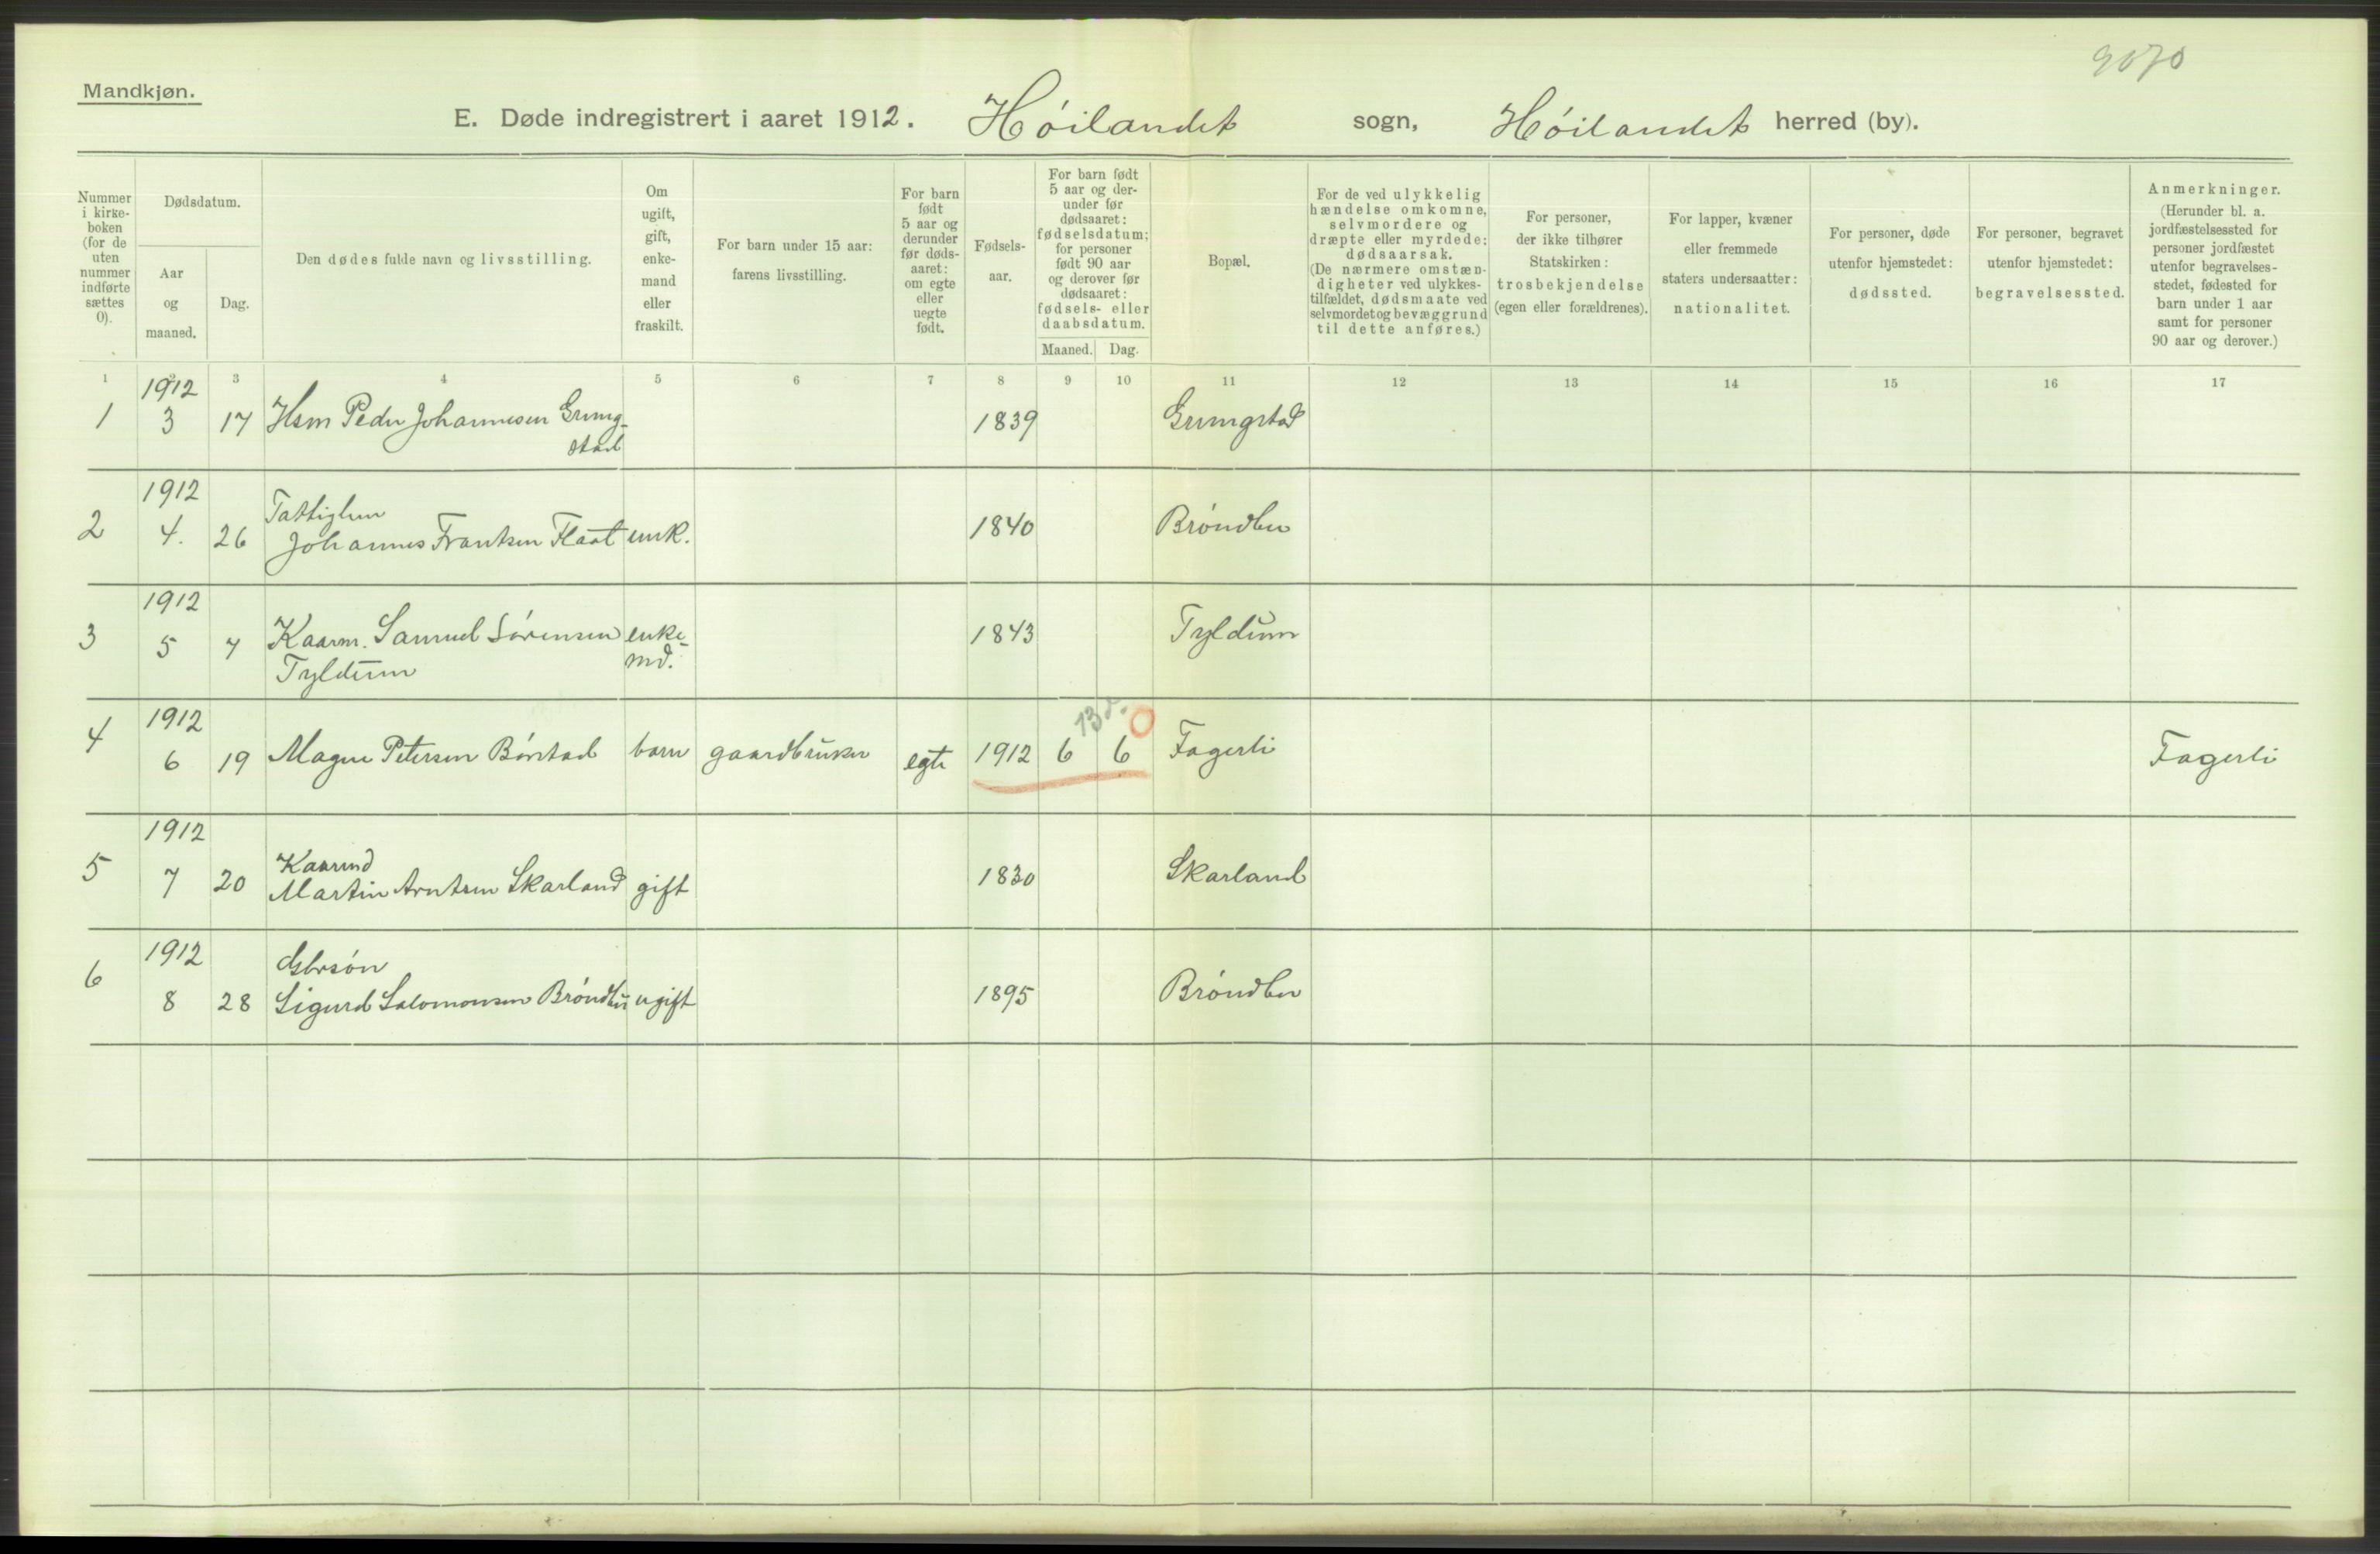 9070
Mandkjøn.
E. Døde indregistrert i aaret 1912. Høilandet sogn, Høilandet herred (by).
Nummer i kirke-boken (for de uten nummer indførte sættes 0).
Dødsdatum.
Aar og maaned.
Dag.
Den dødes fulde navn og livsstilling.
Om ugift, gift, enke-mand eller fraskilt.
For barn under 15 aar: farens livsstilling.
For barn født 5 aar og derunder før døds-aaret: om egte eller uegte født.
Fødsels-aar.
For barn født 5 aar og der-under før dødsaaret: fødselsdatum; for personer født 90 aar og derover før dødsaaret: fødsels- eller daabsdatum.
Maaned. Dag.
Bopæl.
For de ved ulykkelig hændelse omkomne, selvmordere og dræpte eller myrdede: dødsaarsak. (De nærmere omstæn-digheter ved ulykkes-tilfældet, dødsmaate ved selvmordet og bevæggrund til dette anføres.)
For personer, der ikke tilhører Statskirken: trosbekjendelse (egen eller forældrenes).
For lapper, kvæner eller fremmede staters undersaatter: nationalitet.
For personer, døde utenfor hjemstedet: dødssted.
For personer, begravet utenfor hjemstedet: begravelsessted.
Anmerkninger. (Herunder bl. a. jordfæstelsessted for personer jordfæstet utenfor begravelses-stedet, fødested for barn under 1 aar samt for personer 90 aar og derover.)
1 2 3 4 5 6 7 8 9 10 11 12 13 14 15 16 17
1912
1 3 17 Hsm Peder Johannesen Grung- 1839 Grungstad
stad
1912
2 4. 26 Johannes Frantsen Flaat enk. 1840 Brøndbu
1912
3 5 7 Kaarm. Samuel Sørensen enke- 1843 Tyldum
Tyldum md.
1912 13 d. 0
4 6 19 Magne Petersen Børstad barn gaardbruker egte 1912 6 6 Fagerli Fagerli
1912
Kaarmd
5 7 20 Martin Arntsen Skarland gift 1830 Skarland
1912
Gbrsøn
6 8 28 Sigurd Salomonsen Brøndbu ugift 1895 Brøndbu